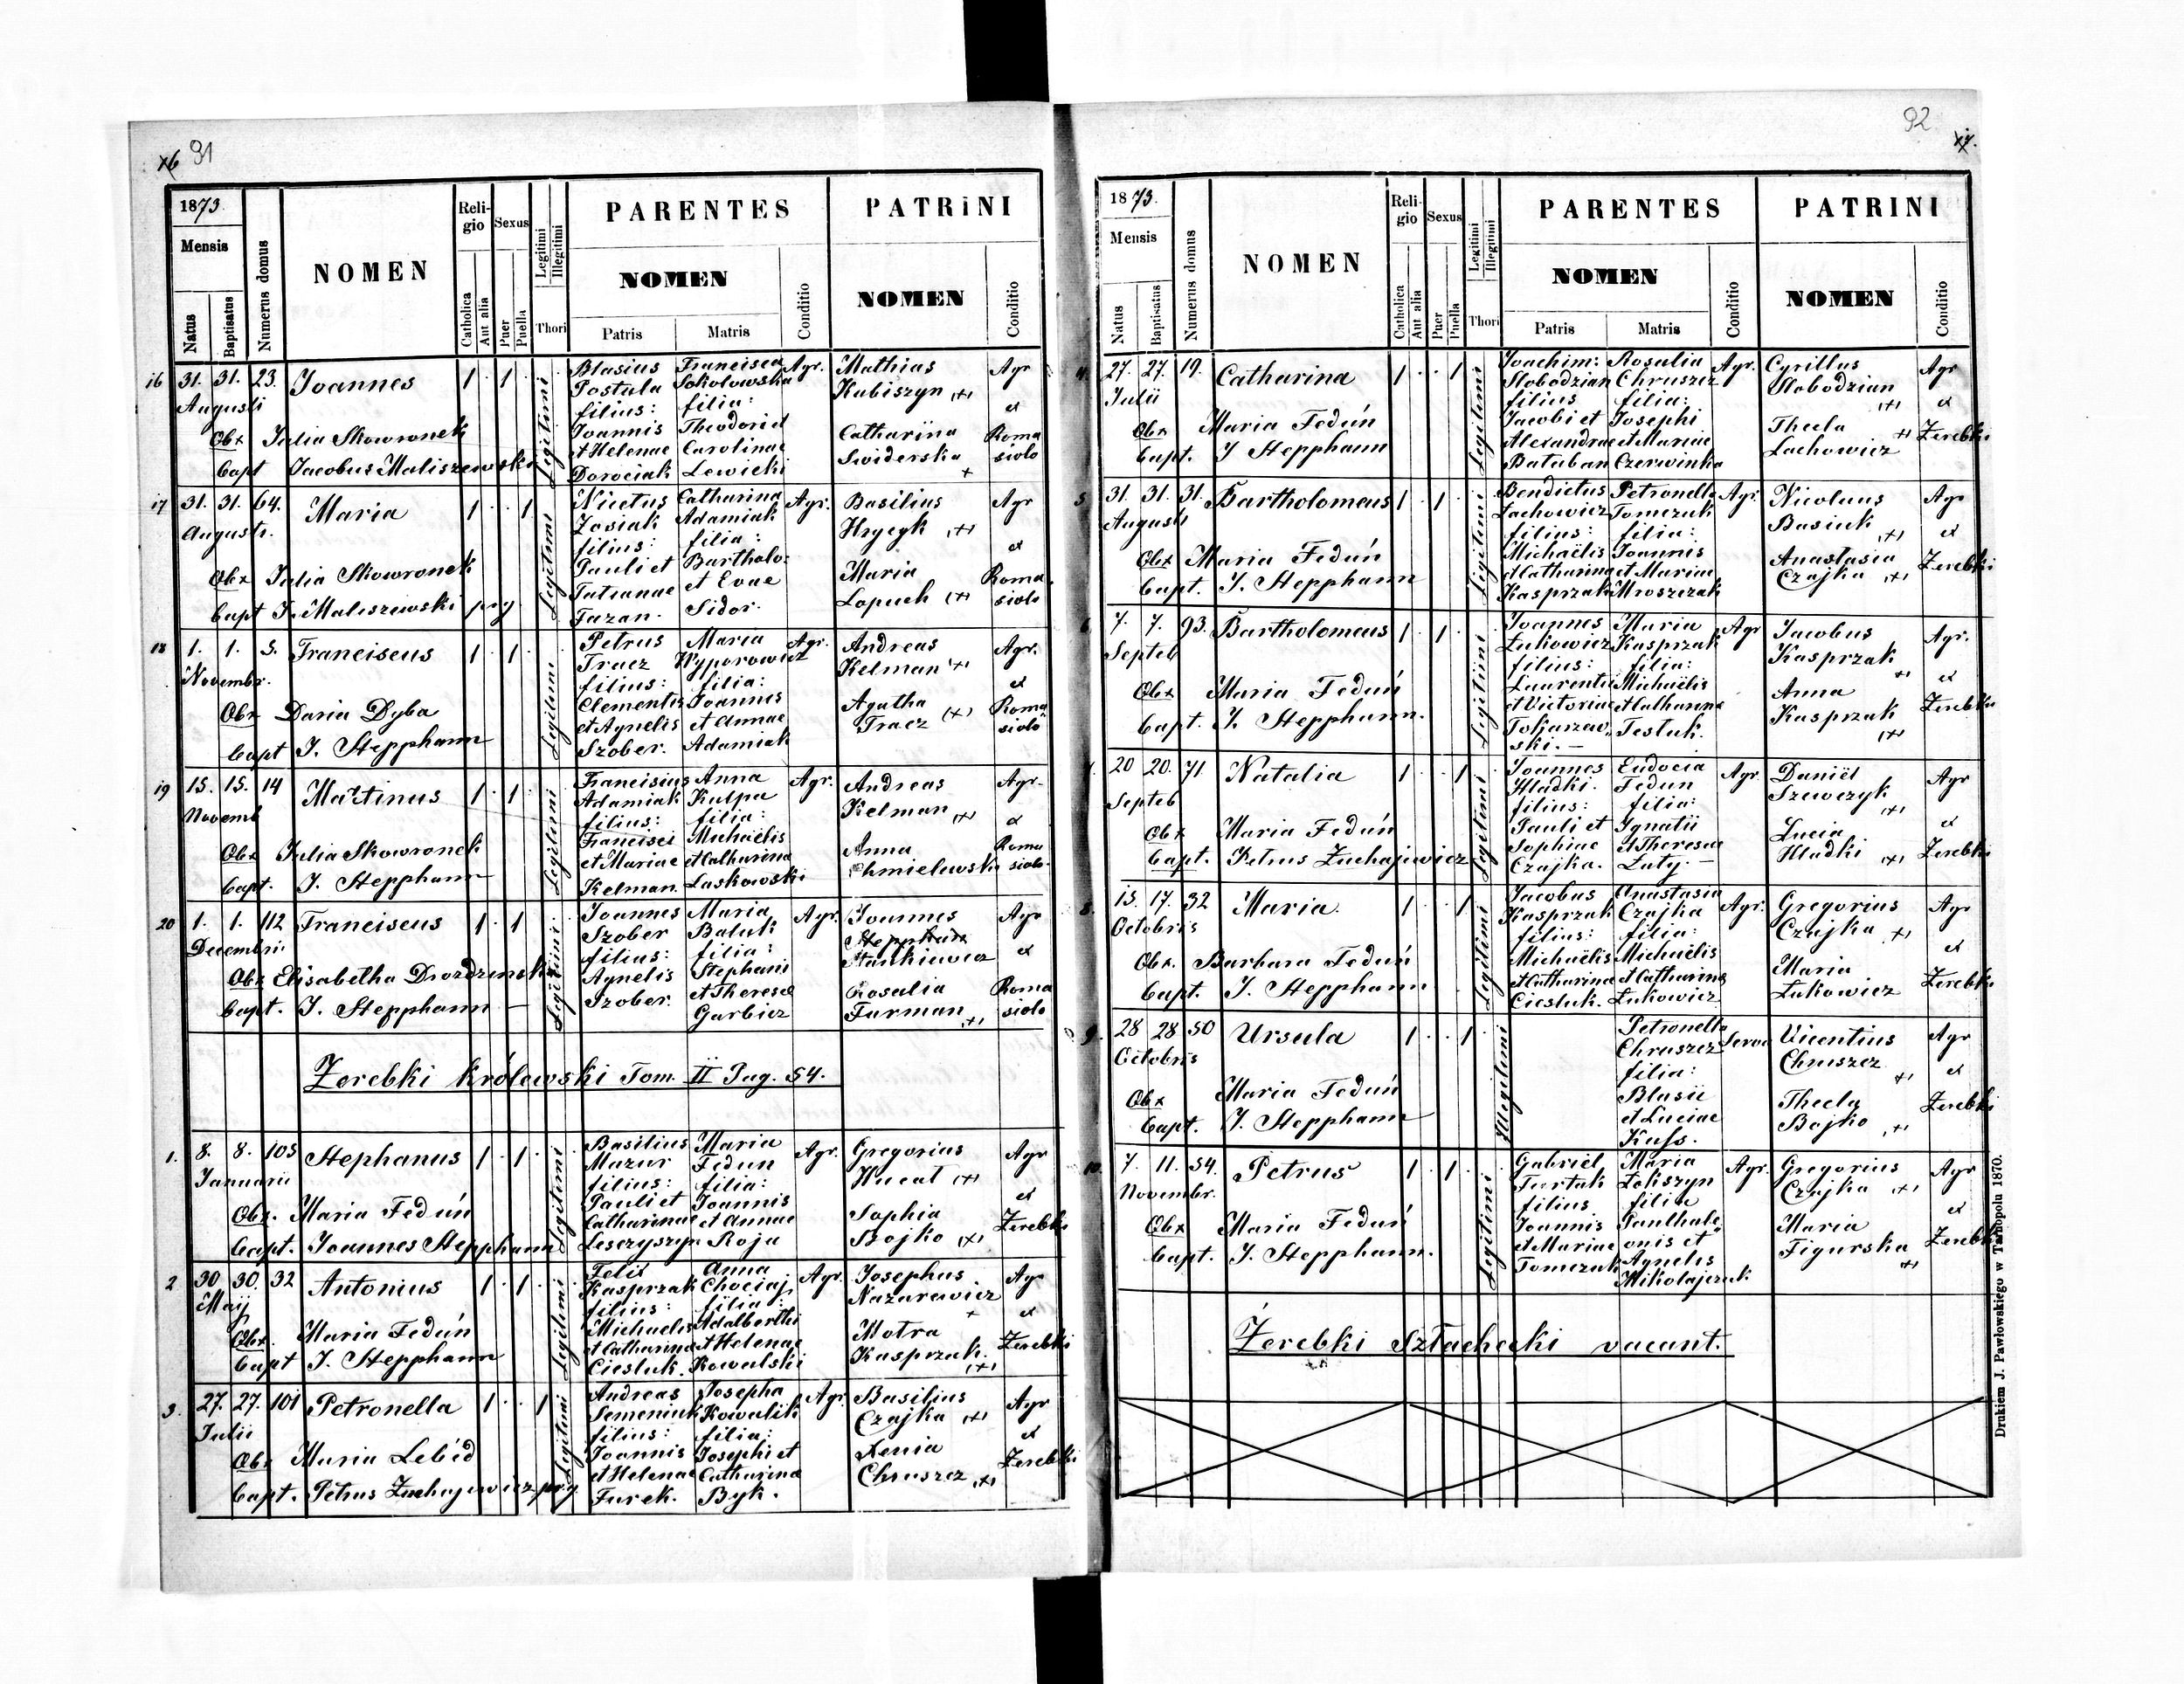 16 91
1873.
Mensis
Natus
Baptisatus
Numerus domus
NOMEN
Religio
Catholica
Aut alia
Sexus
Puer
Puella
Legitimi
Illegitimi
Thori
PARENTES
NOMEN
Patris
Matris
Conditio
PATRINI
NOMEN
Conditio
16 31. 31. 23. Joannes 1 . 1 .
Augusti
Obx Julia Skowronek
Bapt Jacobus Maliszewski
Legitimi
Blasius
Postula
filius:
Joannis
et Helenae
Dorociak
Francisca
Sokolowska
filia:
Theodori et
Carolinae
Lewicki
Agr.
Mathias
Kubiszyn (+)
Catharina
Swiderska
+
Agr
et
Roma
siolo
17 31. 31. 64. Maria 1 . . 1
Augusti.
Obx Julia Skowronek
Bapt J. Maliszewski
Legitimi
Nicetus
Zosiak
filius:
Pauli et
Tatianae
Fazan.
Catharina
Adamiak
filia:
Bartholo:
et Evae
Sidor.
Agr.
Basilius
Hrycyk (+)
Maria
Lopuch (+)
Agr
et
Roma
siolo
18 1. 1. 3. Franciscus 1 . 1 .
Novembr.
Obx Daria Dyba
Bapt J. Stepphann
Legitimi
Petrus
Tracz
filius:
Clementis
et Agnetis
Szober.
Maria
Wyporowicz
filia:
Joannis
et Annae
Adamiak
Agr.
Andreas
Kelman (+)
Agatha
Tracz (+)
Agr.
et
Roma
siolo
19 15. 15. 14 Martinus 1 . 1 .
Novemb
Obx Julia Skowronek
Bapt. J. Stepphann
Legitimi
Francisius
Adamiak
filius:
Francisci
et Mariae
Kelman.
Anna
Kulpa
filia:
Michaëlis
et Catharina
Laskowski
Agr.
Andreas
Kelman (+)
Anna
Chmielewska
Agr.
et
Roma
siolo
20 1. 1. 112 Franciscus 1 . 1 .
Decembris
Obx Elisabetha Drozdzinska
Bapt. J. Stepphann
Legitimi
Joannes
Szober
filius:
Agnetis
Szober.
Maria
Baluk
filia:
Stephani
et Theresae
Garbicz
Agr.
Joannes
Stankiewicz
Rosalia
Furman (+)
Agr
et
Roma
siolo
Zerebki królewski Tom. II Pag. 54.
1. 8. 8. 103 Stephanus 1 . 1 .
Januarii
Obx. Maria Feduń
Bapt. Joannes Stepphann
Legitimi
Basilius
Mazur
filius:
Pauli et
Catharinae
Lesczyszyn
Maria
Fedun
filia:
Joannis
et Annae
Roja
Agr.
Gregorius
Hucal (+)
Sophia
Bojko (+)
Agr
et
Zerebki
2 30 30. 32 Antonius 1 . 1 .
Maij
Obx. Maria Feduń
Bapt J. Stepphann
Legitimi
Felix
Kasprzak
filius:
Michaelis
et Catharinae
Ciesluk.
Anna
Chociaj
filia:
Adalberthi
et Helenae
Kowalski
Agr.
Josephus
Nazarewicz
+
Motra
Kasprzak.
(+)
Agr
et
Zerebki
3. 27. 27. 101 Petronella 1 . . 1
Julii
Obx Maria Lebéd
Bapt. Petrus Zuchajewicz
Legitimi
Andreas
Semeniuk
filius:
Joannis
et Helenae
Turek.
Josepha
Kowalik
filia:
Josephi et
Catharina
Byk.
Agr.
Basilius
Czajka (+)
Xenia
Chruszcz (+)
Agr
et
Zerebki
92 17.
1873.
Mensis
Natus
Baptisatus
Numerus domus
NOMEN
Religio
Catholica
Aut alia
Sexus
Puer
Puella
Legitimi
Illegitimi
Thori
PARENTES
NOMEN
Patris
Matris
Conditio
PATRINI
NOMEN
Conditio
4. 27. 27. 19. Catharina 1 . . 1
Julii
Obx Maria Feduń
Bapt. J Stepphann
Legitimi
Joachim:
Slobodzian
filius
Jacobi et
Alexandrae
Bataban
Rosalia
Chruszcz
filia:
Josephi
et Mariae
Czerwinka
Agr.
Cyrillus
Slobodzian
(+)
Thecla
Lachowicz
Agr
et
Zerebki
5 31. 31. 31. Bartholomeus 1 . 1
Augusti
Obx Maria Feduń
Bapt. J. Stepphann
Legitimi
Bendictus
Lachowicz
filius:
Michaëlis
et Catharina
Kasprzak
Petronella
Tomczuk
filia:
Joannis
et Mariae
Mroszczak
Agr.
Nicolaus
Basiuk (+)
Anastasia
Czajka (+)
Agr
et
Zerebki
6 7. 7. 93. Bartholomeus 1 . 1
Septeb
Obx Maria Feduń
Bapt. J. Stepphann.
Legitimi
Joannes
Łukowicz
filius:
Laurentii
et Victoriae
Tokarzew,
ski. —
Maria
Kasprzak
filia:
Michaëlis
et Catharina
Tesluk.
Agr
Jacobus
Kasprzak
Anna
Kasprzak
(+)
Agr.
et
Zerebki
7. 20 20. 71. Natalia 1 . . 1
Septeb
Obx Maria Feduń
Bapt. Petrus Zuchajewicz
Legitimi
Joannes
Hladki.
filius:
Pauli et
Sophiae
Czajka.
Eudocia
Fedun
filia:
Ignatii
et Theresae
Luty. —
Agr.
Daniel
Szewczyk
(+)
Lucia
Hladki (+)
Agr
et
Zerebki
8. 15. 17. 32 Maria. 1 . . 1
Octobris
Obx. Barbara Feduń
Bapt. J. Stepphann
Legitimi
Jacobus
Kasprzak
filius:
Michaëlis
et Catharina
Ciesluk.
Anastasia
Czajka
filia:
Michaëlis
et Catharina
Łukowicz
Agr.
Gregorius
Czajka +)
Maria
Łukowicz
Agr
et
Zerebki
9. 28 28 50 Ursula 1 . . 1
Octobris
Obx Maria Feduń
Bapt. J. Stepphann
Illegitimi
Petronella
Chruszcz
filia:
Blasii
et Luciae
Kuss.
Serva
Vicentius
Chruszcz
Thecla
Bojko
Agr
et
Zerebki
10. 7. 11. 54. Petrus 1 . 1
Novembr.
Obx Maria Feduń
Bapt. J. Stepphann.
Legitimi
Gabriel
Tertak
filius
Joannis
et Mariae
Tomczuk
Maria
Lekszyn
filia
Panthale
onis et
Agnetis
Mikolajczuk
Agr.
Gregorius
Czajka (+)
Maria
Figurska
Agr
et
Zerebki
Żerebki Szłachecki vacant.
Drukiem J. Pawłowskiego w Tarnopolu 1870.